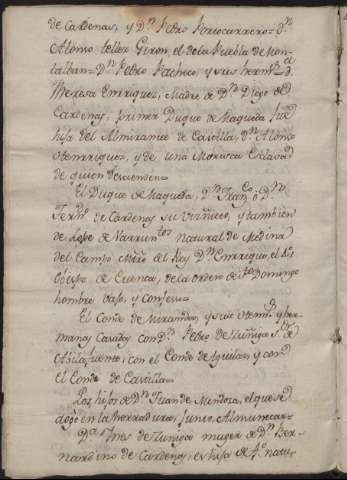 de Cardenas, y Dn. Pedro Portocarrero= Dn.
Alonso Tellez Giron, el de la Puebla de Mon-
talban= Dn. Pedro Pacheco, y sus herm.os= Da.
Theresa Enrriquez, Madre de Dn. Diego de
Cardenas, primer Duque de Maqueda fue
hija del Almirante de Castilla, Dn. Alonso
Henrriquez, y de una Morisca Esclava
de quien descienden=
El Duque de Maqueda, Dn. Fran.co o Dn.
Fern.do de Cardenas su visnieto, y tambien
de Lope de Barrun.tos Natural de Medina
del Campo Mtro. del Rey Dn. Enrrique, el
Obispo de Cuenca, de la orden de Sto. Domingo
hombre vajo, y Confesso=
El Conde de Miranda, y sus deudos y her-
manos Casados con Dn. Pedro de Zuñiga Sr. de
Abilafuente, con el Conde de Aguilar, y con
el Conde de Castilla=
Los hijos de Dn. Juan de Mendoza, el que se
aogó en la herradura, junto, Almuñecar=
Da. Ines de Zuñiga muger de Dn. Ber-
nardino de Cardenas, es hija de Po. natu-